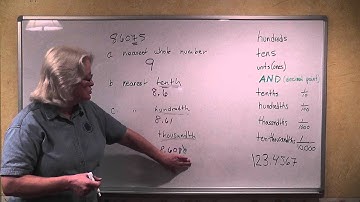 8.6075
a. nearest whole number
9
b. nearest tenth
8.6
c. " hundredth
8.61
thousandth
hundreds
tens
units (ones)
AND (decimal point)
tenths 1/10
hundredths 1/100
thousandths 1/1000
ten thousandths 1/10000
123.4567